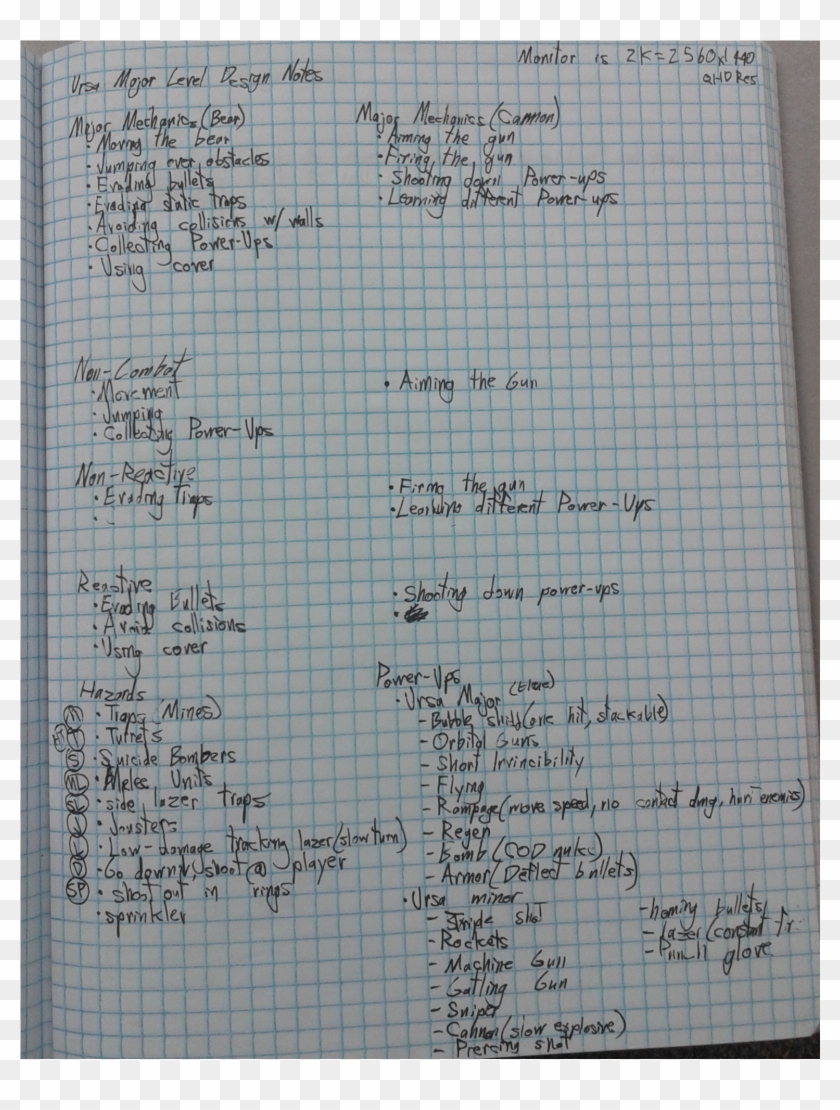 Monitor is 2K=2560x1440
QHD Res
Ursa Major Level Design Notes
Major Mechanics (Bear)
· Moving the bear
· Jumping over obstacles
· Evading bullets
· Evading static traps
· Avoiding collisions w/ walls
· Collecting Power-Ups
· Using cover
Major Mechanics (Cannon)
· Aiming the gun
· Firing the gun
· Shooting down Power-ups
· Learning different Power-ups
Non-Combat
· Movement
· Jumping
· Collecting Power-Ups
· Aiming the Gun
Non-Reactive
· Evading Traps
·
· Firing the gun
· Learning different Power-Ups
Reactive
· Evading Bullets
· Avoid collisions
· Using cover
· Shooting down power-ups
·
Hazards
M · Traps (Mines)
T · Turrets
S · Suicide Bombers
ML · Melee Units
SL · side lazer traps
J · Jousters
L · Low-damage tracking lazer (slow turn)
D · Go down, shoot @ player
SP · shoot out in rings
· sprinkler
Power-Ups
· Ursa Major
- Bubble shield (one hit, stackable)
- Orbital Guns
- Short Invincibility
- Flying
- Rampage (move speed, no contact dmg, hurt enemies)
- Regen
- Bomb (COD nuke)
- Armor (Deflect bullets)
· Ursa minor
- Triple shot
- Rockets
- Machine Gun
- Gatling Gun
- Sniper
- Cannon (slow explosive)
- Piercing shot
- homing bullets
- lazer (constant fr
- Punch glove